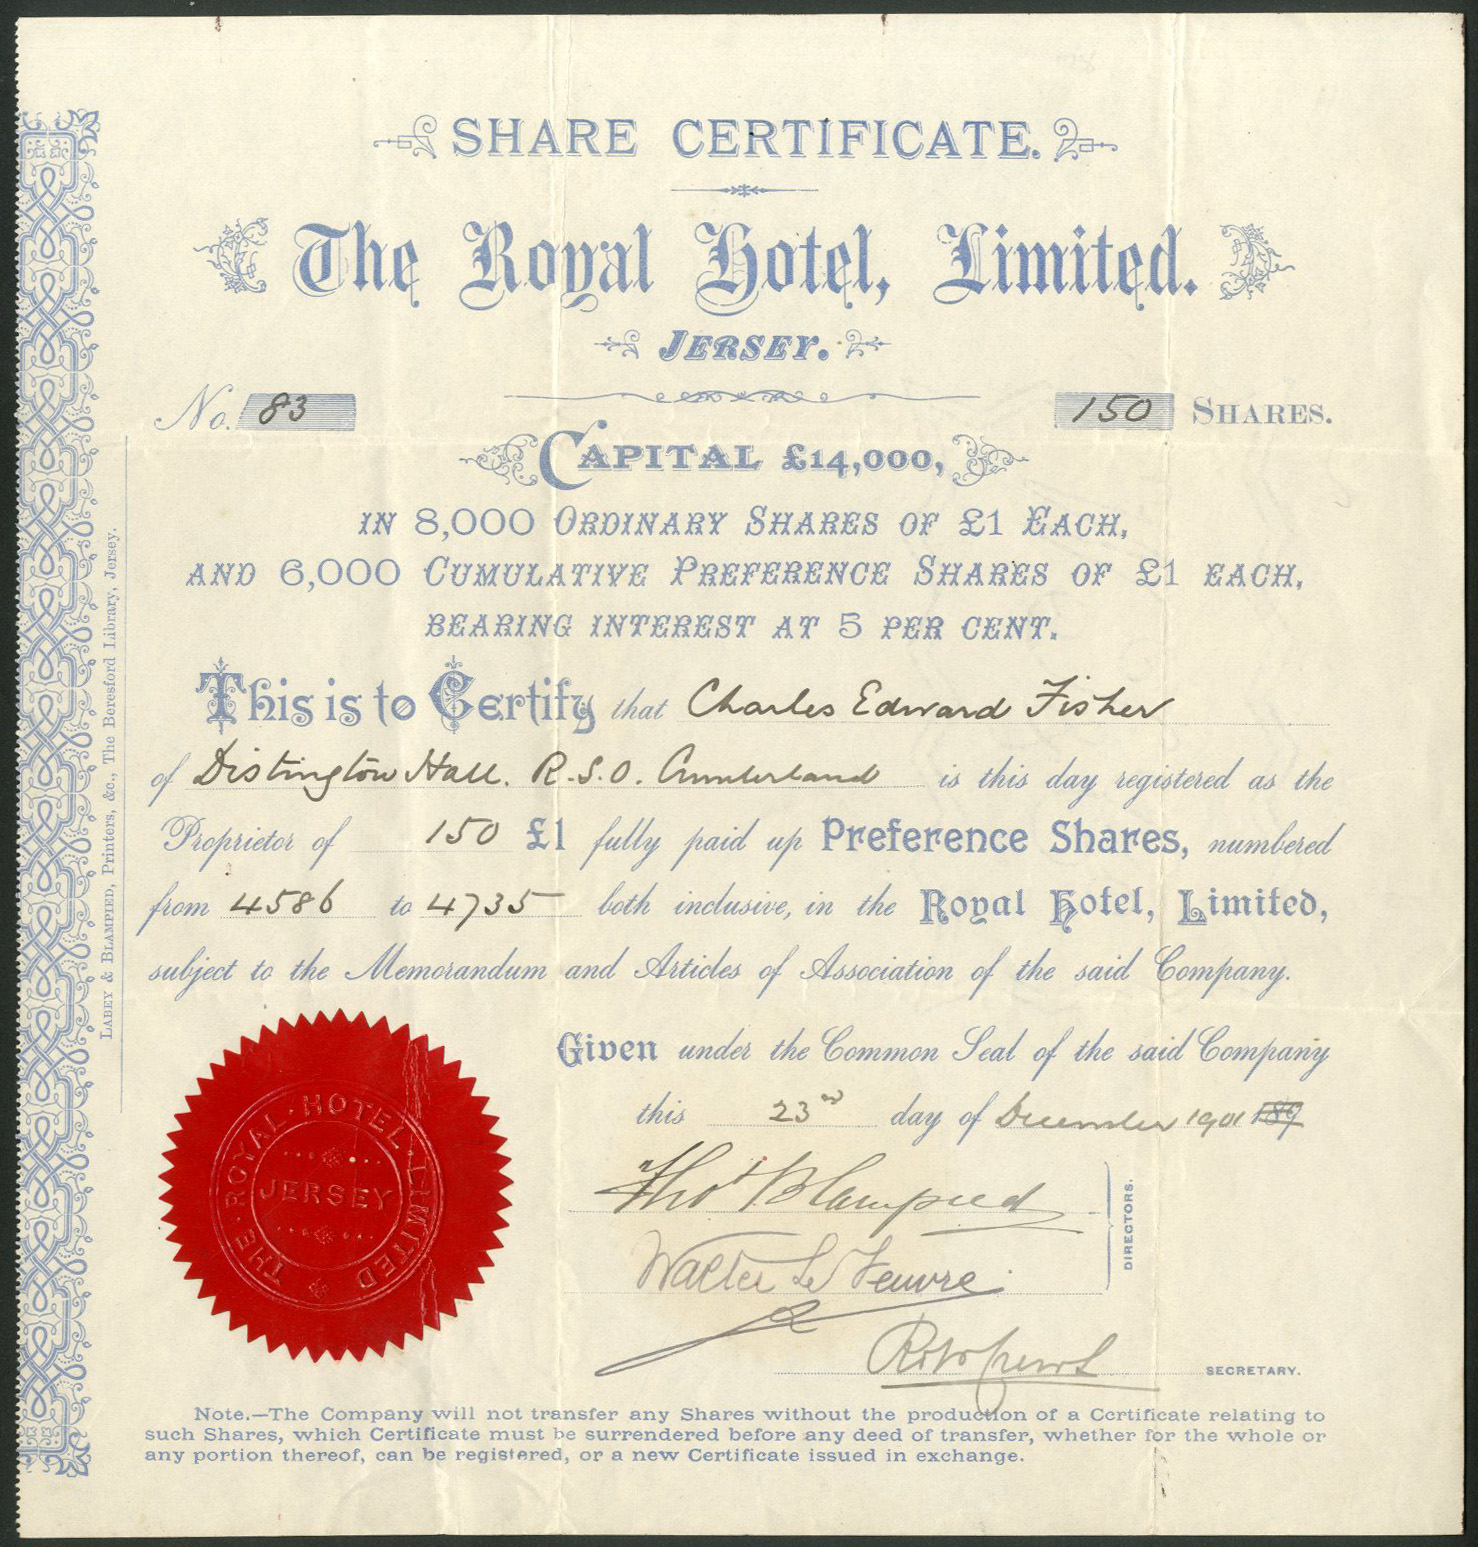 SHARE CERTIFICATE.
The Royal Hotel, Limited.
JERSEY.
No. 83
150 SHARES.
CAPITAL £14,000,
IN 8,000 ORDINARY SHARES OF £1 EACH,
AND 6,000 CUMULATIVE PREFERENCE SHARES OF £1 EACH,
BEARING INTEREST AT 5 PER CENT.
This is to Certify that Charles Edward Fisher
of Distington Hall. R.S.O. Cumberland is this day registered as the
Proprietor of 150 £1 fully paid up Preference Shares, numbered
from 4586 to 4735 both inclusive, in the Royal Hotel, Limited,
subject to the Memorandum and Articles of Association of the said Company.
Given under the Common Seal of the said Company
this 23rd day of December 1901 189
Thos Blampied
Walter Le Feuvre
DIRECTORS.
SECRETARY.
THE ROYAL HOTEL LIMITED
JERSEY
Note.—The Company will not transfer any Shares without the production of a Certificate relating to
such Shares, which Certificate must be surrendered before any deed of transfer, whether for the whole or
any portion thereof, can be registered, or a new Certificate issued in exchange.
LABEY & BLAMPIED, Printers, &c., The Beresford Library, Jersey.